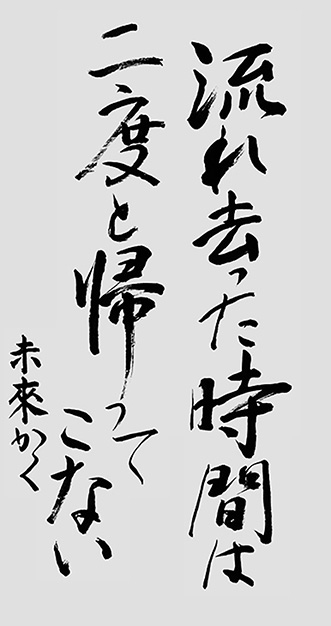 流れ去った時間は
二度と帰って
こない
未來かく